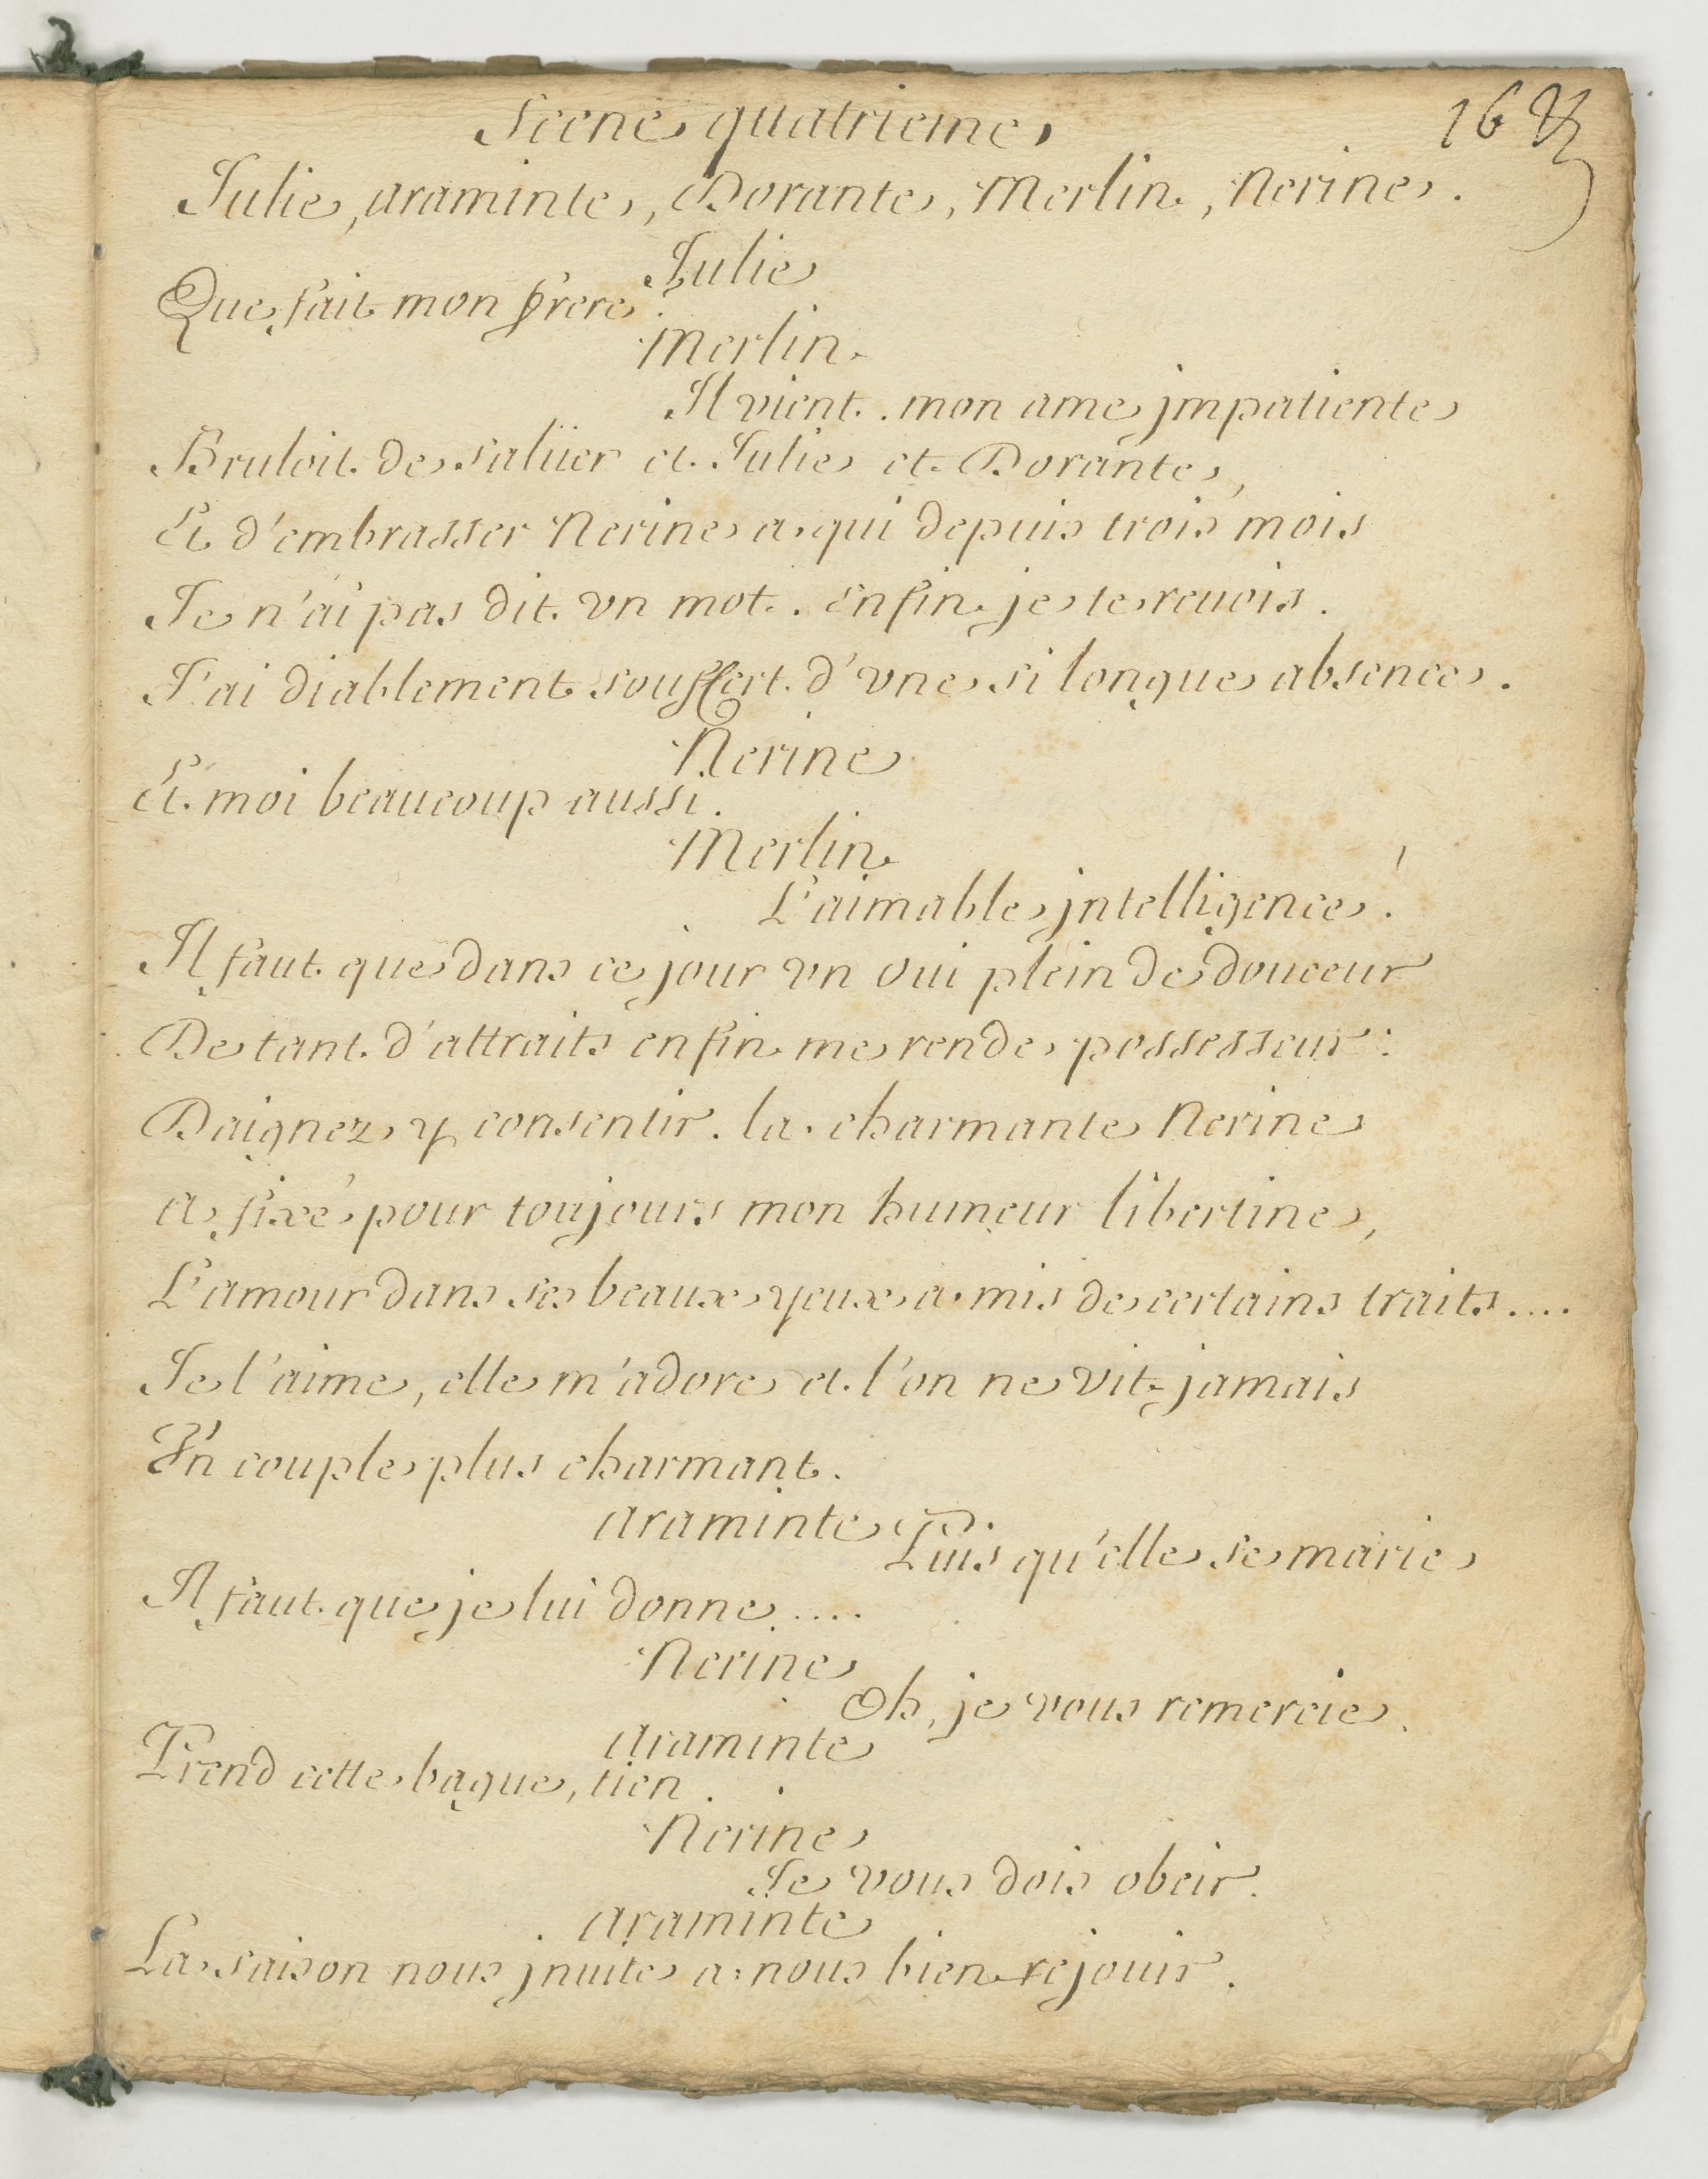 16
Scene quatrieme
Julie, araminte, Dorante, Merlin, Nerine.
Julie
Que fait mon frere.
Merlin
Il vient. mon ame jmpatiente
Bruloit de salüer et Julie et Dorante,
Et d'embrasser Nerine a qui depuis trois mois
Je n'ai pas dit vn mot. Enfin je te reuois.
J'ai diablement souffert d'vne si longue absence.
Nerine
Et moi beaucoup aussi.
Merlin
L'aimable jntelligence!
Il faut que dans ce jour vn oui plein de douceur
De tant d'attraits enfin me rende possesseur:
Daignez y consentir. la charmante Nerine
a fixé pour toujours mon humeur libertine,
L'amour dans ses beaux yeux a mis de certains traits....
Je l'aime, elle m'adore et l'on ne vit jamais
Vn couple plus charmant.
araminte
Puis qu'elle se marie
Il faut que je lui donne....
Nerine
Oh, je vous remercie.
araminte
Prend cette bague, tien.
Nerine
Je vous dois obeir.
araminte
La saison nous jnuite a nous bien rejouir.